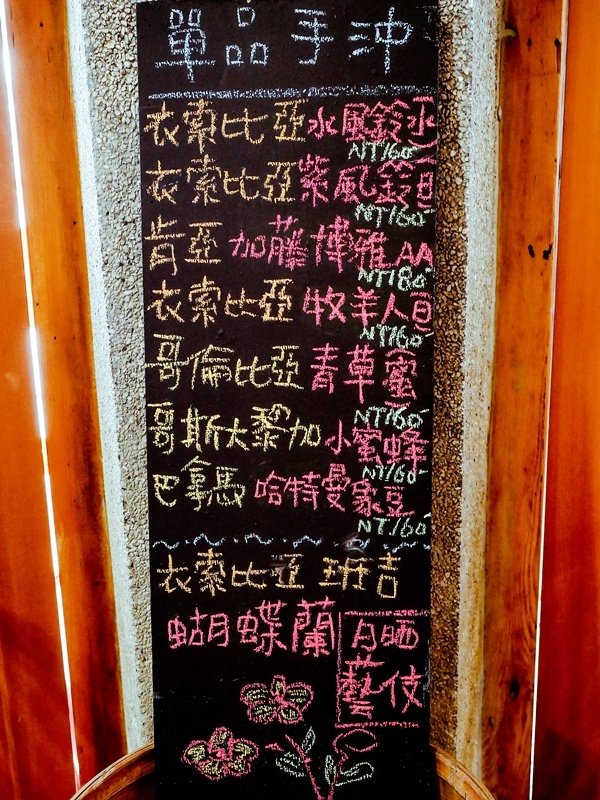 單品手沖
衣索比亞 水風鈴 水
NT160
衣索比亞 紫風鈴 日
NT160
肯亞 加藤博雅 AA
NT180
衣索比亞 牧羊人 日
NT160
哥倫比亞 青草蜜
NT160
哥斯大黎加 小蜜蜂
NT160
巴拿馬 哈特曼家豆
NT.160
衣索比亞 班吉
蝴蝶蘭
日晒
藝伎